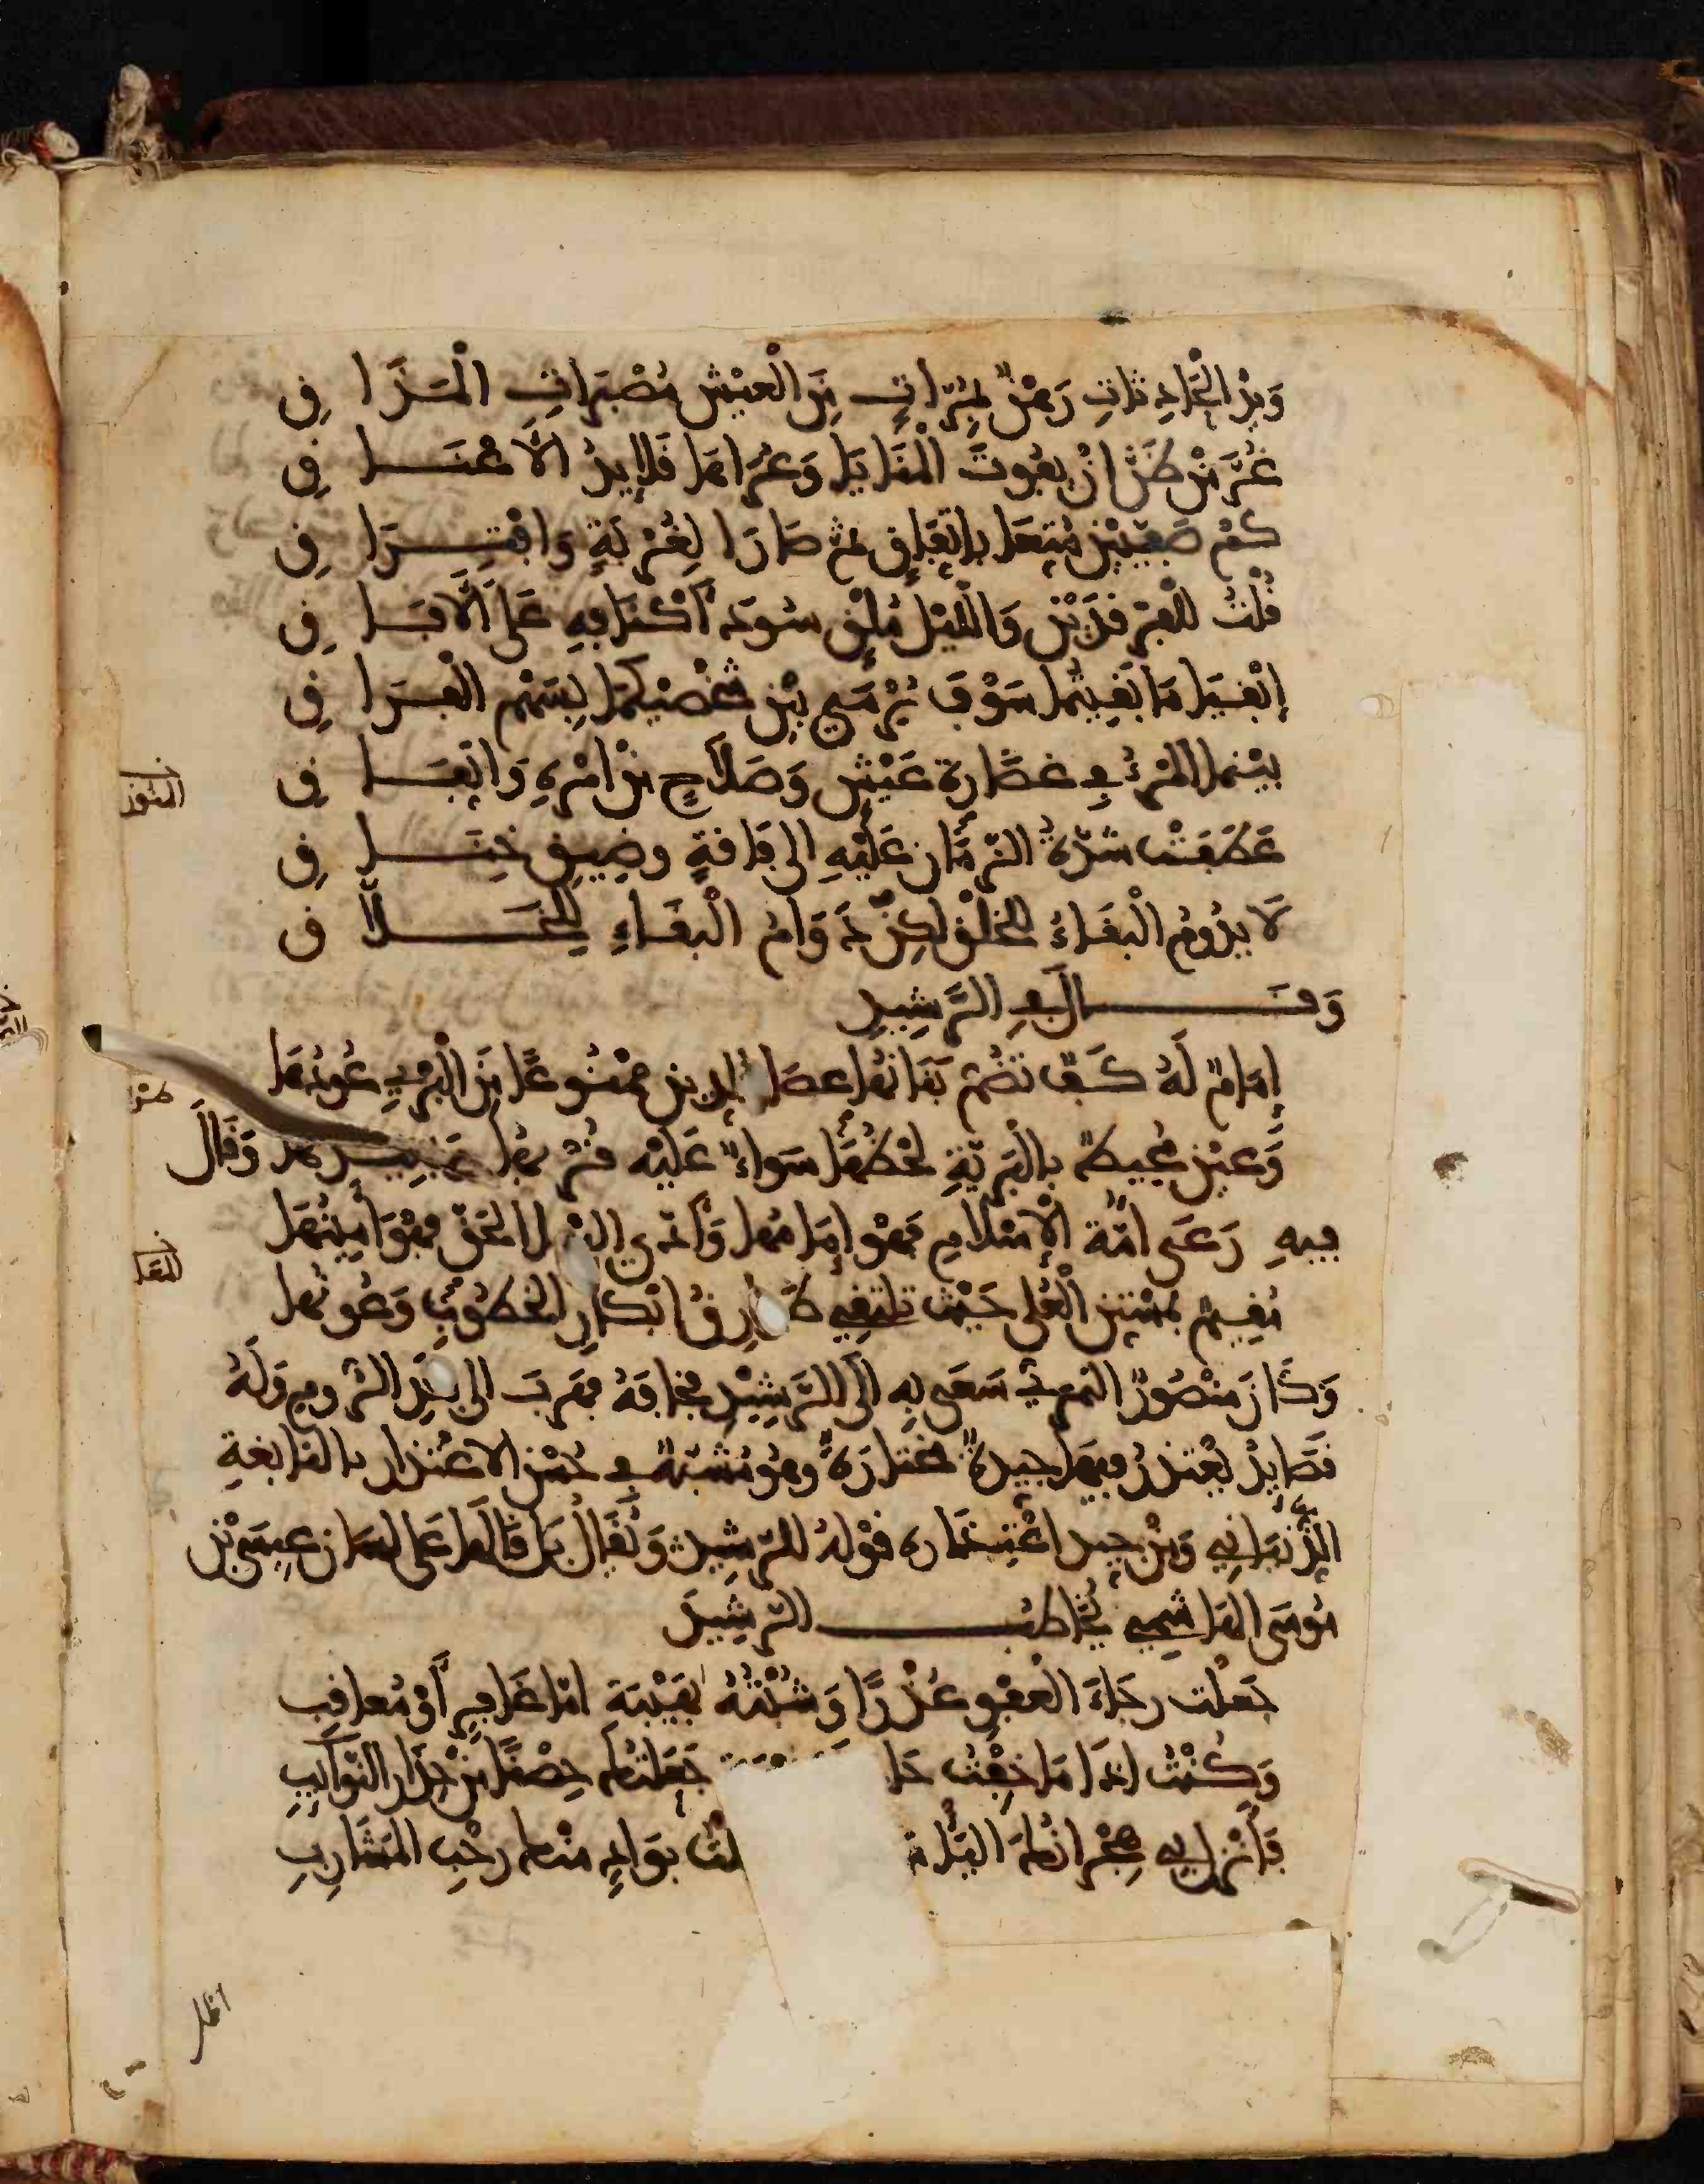 وَيدُ الحَادِثاتِ رَهْنٌ بمُرّاتٍ مِنَ العَيْشِ مُصْبَرَاتِ المَذَا قِ
غُرَّ مَنْ ظَنَّ انْ يفُوتَ المنَايَا وَعُرَاهَا قَلايدُ الأعْنَا قِ
كمْ صَفِيَّيْنِ مُتِّعَا باتِّفَاقٍ ثم صَارَا لِغُرْبَةٍ وَافْتِرَا قِ
قُلْتُ للفرْقدَيْنِ وَالليْلُ مُلْقٍ سُودَ أكْنَافِهِ عَلى الآفَا قِ
إبْقيَا مَا بَقِيتُمَا سَوْفَ يُرْمَى بيْن شَخْصَيْكمَا بِسَهْمِ الفِرَا قِ
بيْنما المَرْءُ في غضَارةِ عَيْشٍ وَصَلاحٍ منْ امْرِهِ وَاتِّفَا قِ
عَطَفَتْ شدّةُ الزّمَان عَلَيْهِ الى فَاقةٍ وضِيقِ خِنَا قِ
لا يدُومُ الْبقَاءُ للخلْقِ لكِنَّ دَوَامَ الْبقَاءِ لِلخَلّا ق
وَقَال في الرَّشِيدِ
إمَامٌ لَهُ كَفٌّ تضُمّ بَنَانهَا عصَا الدين ممْنُوعًا مِنَ الْبَرْيِ عُودُهَا
وَعيْن محيطٌ بالبَرِيّةِ لحْظُهَا سَواءٌ عَلَيْه قُرْبهَا وَبعيدهَا وَقَالَ
فيهِ رَعَى امّةَ الإسْلامِ فَهْوَ إمَامُهَا وَأدّى اليْهَا الحَقّ فهْوَ أمِينُهَا
مُقِيمٌ بمُسْتنّ العُلى حَيْث تلتقي طَوَارقُ ابْكارِ الخطُوبِ وَعُونُهَا
وَكَانَ مَنْصُورٌ النمَري سَعَى بِهِ الَى الرَّشِيْدِ فخافَهُ فهَرَبَ الى بلَدِ الرُّومِ وَلَهُ
قصَايدُ يعْتذرُ فِيهَا جيدةٌ مختارَةٌ وهُوَ مُشَبّهٌ في حُسْن الاعْتذار بالنابغةِ
الذّبيَاني وَمِنْ جيد اعْتِذَاره قوْلهُ للرّشِيد وَيُقَالُ بَل قالهَا عَلى لسَان عِيسَى بْن
مُوسَى الهَاشمِي يُخَاطبُ الرّشِيدَ
جَعلْت رجَاءَ العفْوِ عُذرًا وَشُبْتُهُ بهَيْبَةِ امّا غَافِرٍ أوْ مُعاقِب
وَكُنْتُ إذَا مَا خِفْتُ حَا جَعَلْتُكمُ حِصْنًا مِنْ حِذَار النّوَايِبِ
فَأنْزَلَ بي هِجْرَانُكمُ اليَأسَ لْتُ بوَادٍ منْكم رحْبِ المَشارِبِ